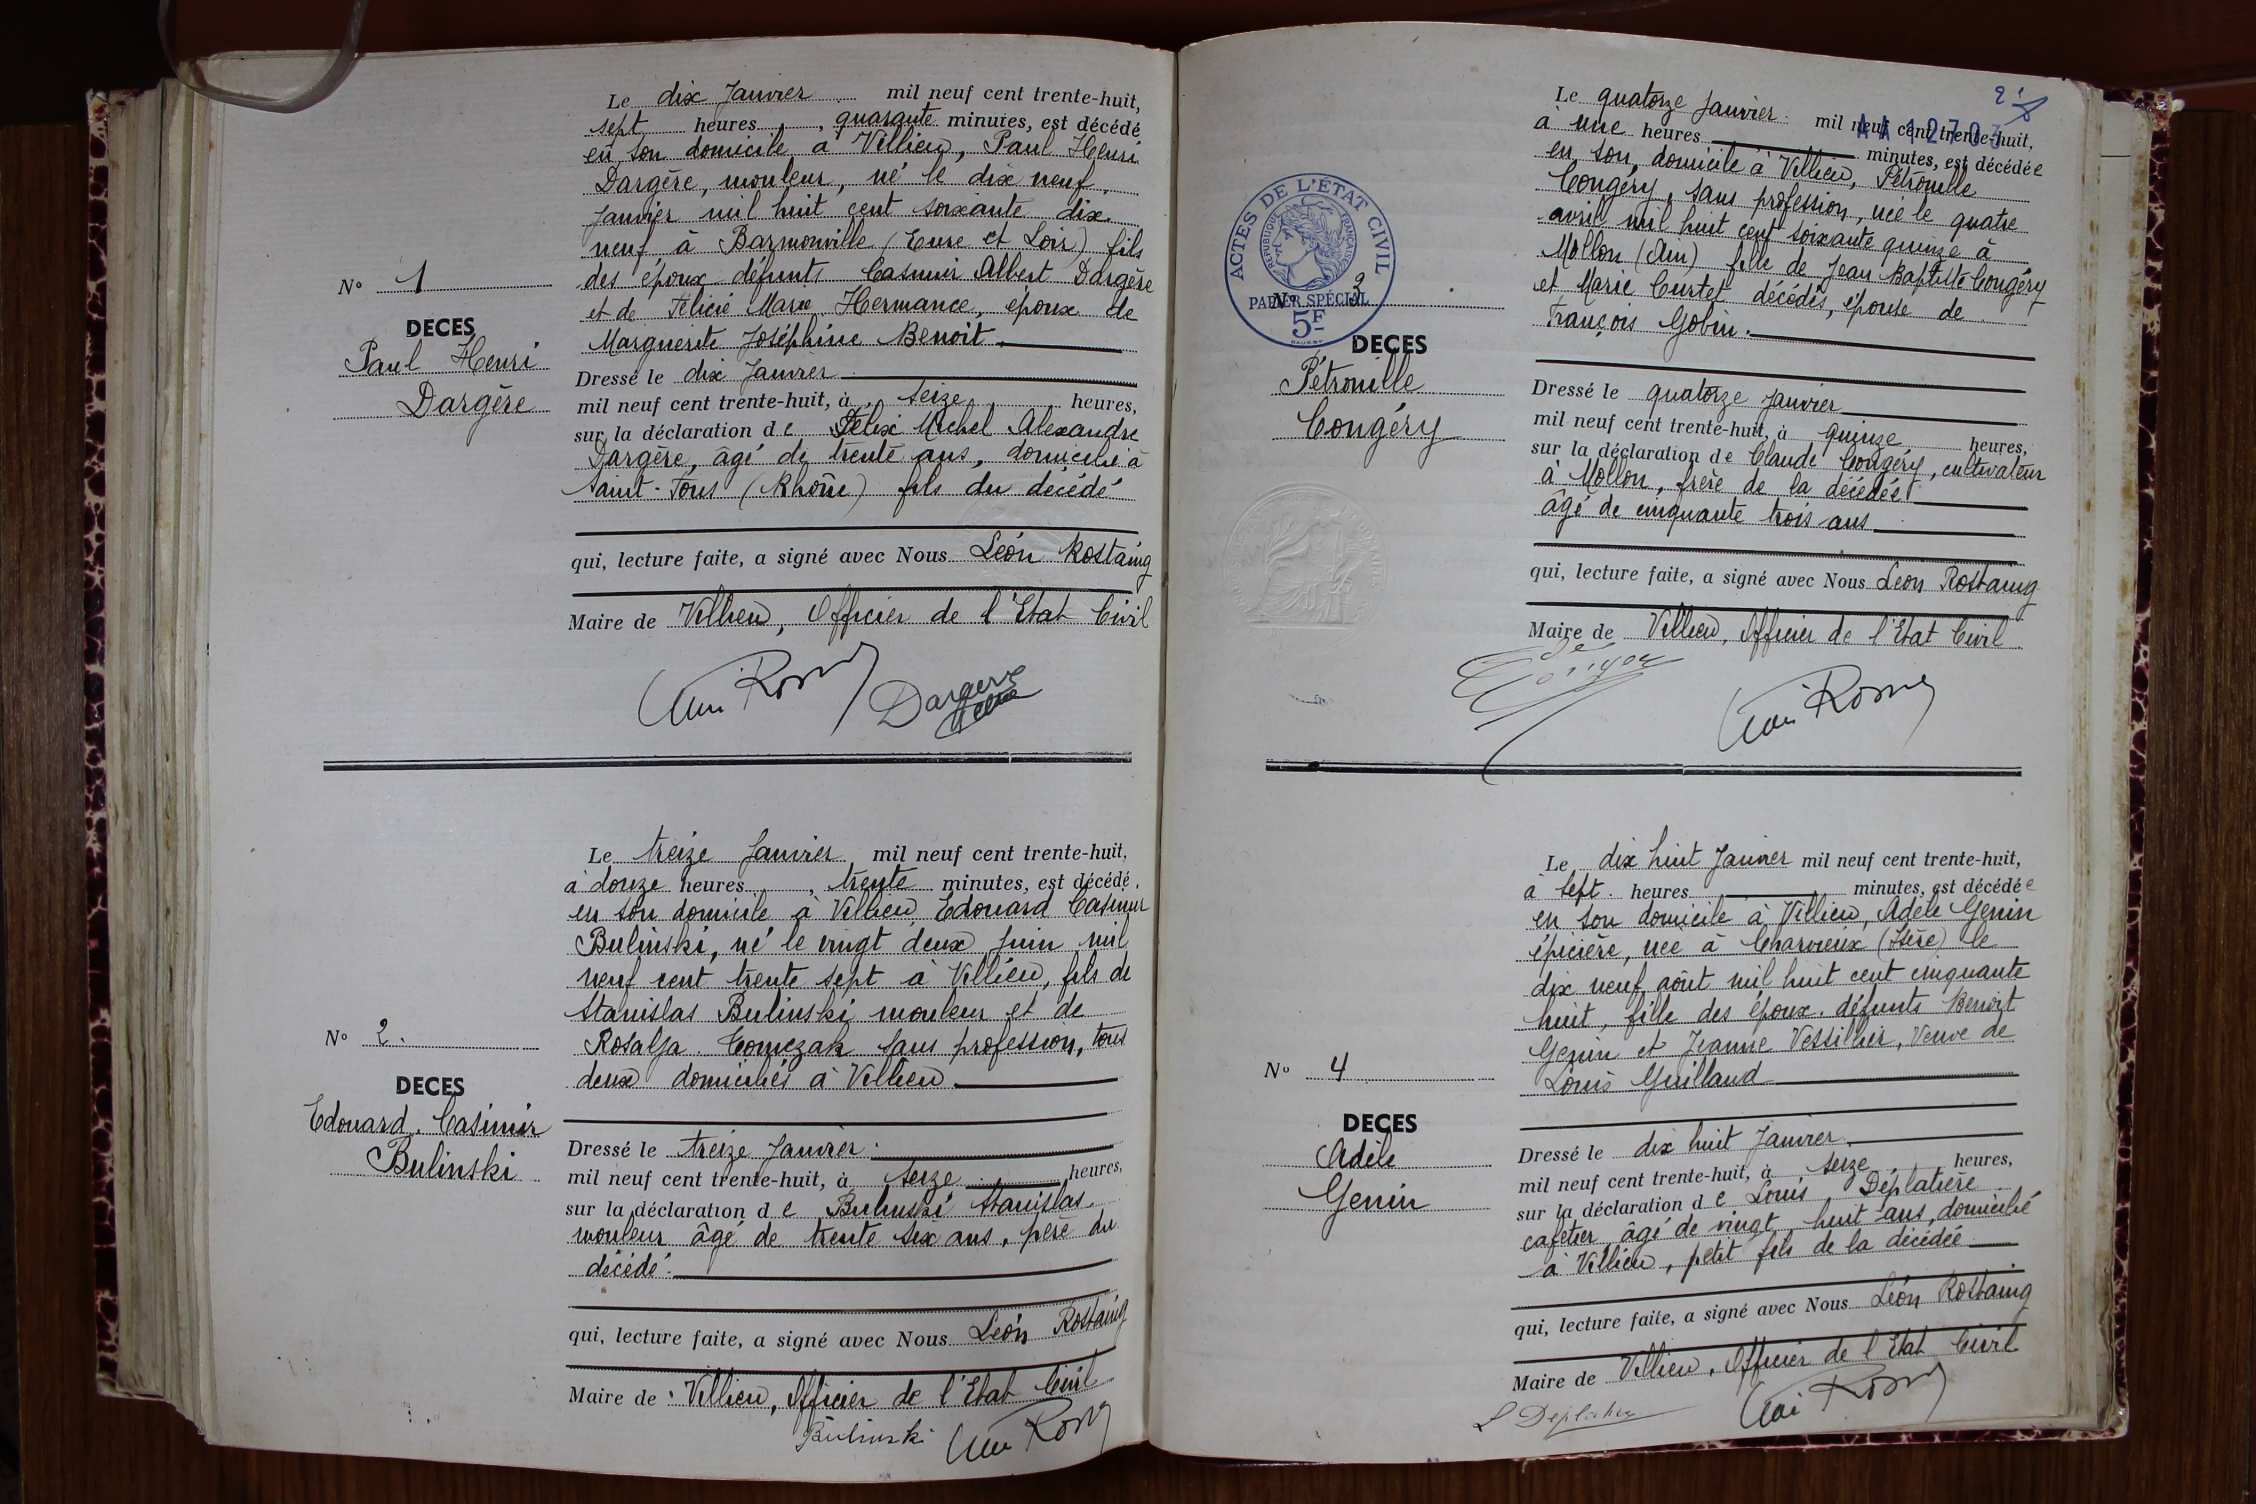 Le dix Janvier mil neuf cent trente-huit,
sept heures, quarante minutes, est décédé
en son domicile à Villieu, Paul Henri
Dargère, mouleur, né le dix neuf
Janvier mil huit cent soixante dix
neuf à Barmonville (Eure et Loir) fils
des époux défunts Casimir Albert Dargère
et de Félicie Marie Hermance, époux de
Marguerite Joséphine Benoit.
Dressé le dix Janvier
mil neuf cent trente-huit, à seize heures,
sur la déclaration de Félix Michel Alexandre
Dargère, âgé de trente ans, domicilié à
Saint-Fons (Rhône) fils du décédé
qui, lecture faite, a signé avec Nous Léon Rostaing
Maire de Villieu, Officier de l'Etat Civil
Dargère
Félix
No 1
DECES
Paul Henri
Dargère
Le treize Janvier mil neuf cent trente-huit,
à douze heures, trente minutes, est décédé
en son domicile à Villieu Edouard Casimir
Bulinski, né le vingt deux Juin mil
neuf cent trente sept à Villieu, fils de
Stanislas Bulinski mouleur et de
Rosalja Tomczak sans profession, tous
deux domiciliés à Villieu
Dressé le treize Janvier
mil neuf cent trente-huit, à seize heures,
sur la déclaration de Bulinski Stanislas
mouleur âgé de trente six ans, père du
décédé.
qui, lecture faite, a signé avec Nous Léon Rostaing
Maire de Villieu, Officier de l'Etat Civil
Bulinski
No 2.
DECES
Edouard Casimir
Bulinski
2
Le quatorze Janvier mil neuf cent trente-huit,
à une heures minutes, est décédée
en son domicile à Villieu, Pétronille
Congéry, sans profession, née le quatre
avril mil huit cent soixante quinze à
Mollon (Ain) fille de Jean Baptiste Congéry
et Marie Curtet décédés, épouse de
François Gobin.
Dressé le quatorze Janvier
mil neuf cent trente-huit, à quinze heures,
sur la déclaration de Claude Congéry, cultivateur
à Mollon, frère de la décédée
âgé de cinquante trois ans
qui, lecture faite, a signé avec Nous Léon Rostaing
Maire de Villieu, Officier de l'Etat Civil
ACTES DE L'ÉTAT CIVIL
RÉPUBLIQUE FRANÇAISE
PAPIER SPÉCIAL
5F
No 3
DECES
Pétronille
Congéry
Le dix huit Janvier mil neuf cent trente-huit,
à sept heures minutes, est décédée
en son domicile à Villieu, Adèle Genin
épicière, née à Charvieux (Isère) le
dix neuf août mil huit cent cinquante
huit, fille des époux défunts Benoit
Genin et Jeanne Vessillier, Veuve de
Louis Guilland
Dressé le dix huit Janvier
mil neuf cent trente-huit, à seize heures,
sur la déclaration de Louis Déplatière
cafetier âgé de vingt huit ans, domicilié
à Villieu, petit fils de la décédée
qui, lecture faite, a signé avec Nous Léon Rostaing
Maire de Villieu, Officier de l'Etat Civil
No 4
DECES
Adèle
Genin